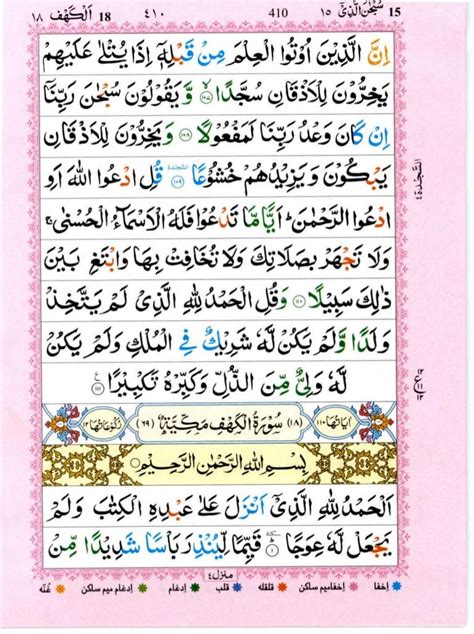 اَلْكَهْف ١٨ 18 ٤١٠ 410 سُبْحٰنَ الَّذِيْٓ ١٥ 15
اِنَّ الَّذِيْنَ اُوْتُوا الْعِلْمَ مِنْ قَبْلِهٖٓ اِذَا يُتْلٰى عَلَيْهِمْ
يَخِرُّوْنَ لِلْاَذْقَانِ سُجَّدًا ۙ١٠٧ وَّيَقُوْلُوْنَ سُبْحٰنَ رَبِّنَآ
اِنْ كَانَ وَعْدُ رَبِّنَا لَمَفْعُوْلًا ١٠٨ وَيَخِرُّوْنَ لِلْاَذْقَانِ
يَبْكُوْنَ وَيَزِيْدُهُمْ خُشُوْعًا ۩ ١٠٩ قُلِ ادْعُوا اللّٰهَ اَوِ
ادْعُوا الرَّحْمٰنَ ؕ اَيًّا مَّا تَدْعُوْا فَلَهُ الْاَسْمَآءُ الْحُسْنٰى ۚ
وَلَا تَجْهَرْ بِصَلَاتِكَ وَلَا تُخَافِتْ بِهَا وَابْتَغِ بَيْنَ
ذٰلِكَ سَبِيْلًا ١١٠ وَقُلِ الْحَمْدُ لِلّٰهِ الَّذِيْ لَمْ يَتَّخِذْ
وَلَدًا وَّلَمْ يَكُنْ لَّهٗ شَرِيْكٌ فِي الْمُلْكِ وَلَمْ يَكُنْ
لَّهٗ وَلِيٌّ مِّنَ الذُّلِّ وَكَبِّرْهُ تَكْبِيْرًا ١١١
اٰيَاتُهَا ١١٠ (١٨) سُوْرَةُ الْكَهْفِ مَكِّيَّةٌ (٦٩) رُكُوْعَاتُهَا ١٢
بِسْمِ اللّٰهِ الرَّحْمٰنِ الرَّحِيْمِ
اَلْحَمْدُ لِلّٰهِ الَّذِيْٓ اَنْزَلَ عَلٰى عَبْدِهِ الْكِتٰبَ وَلَمْ
يَجْعَلْ لَّهٗ عِوَجًا ١ قَيِّمًا لِّيُنْذِرَ بَاْسًا شَدِيْدًا مِّنْ
منزل ٤
اخفا اخفامیم ساکن قلقله قلب ادغام ادغام میم ساکن غُنّه
السَّجْدَة ٤